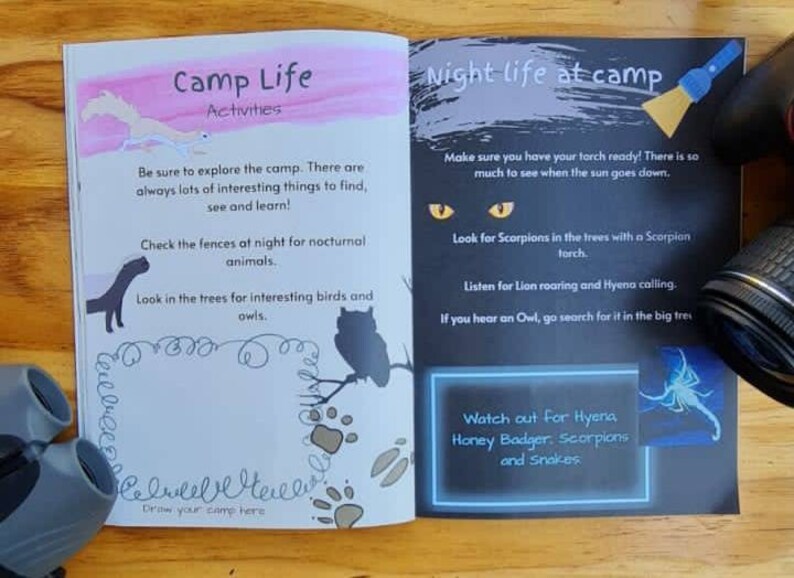 Camp Life
Activities
Be sure to explore the camp. There are
always lots of interesting things to find,
see and learn!
Check the fences at night for nocturnal
animals.
Look in the trees for interesting birds and
owls.
Draw your camp here
Night life at camp
Make sure you have your torch ready! There is so
much to see when the sun goes down.
Look for Scorpions in the trees with a Scorpion
torch.
Listen for Lion roaring and Hyena calling.
If you hear an Owl, go search for it in the big
Watch out for Hyena,
Honey Badger, Scorpions
and Snakes.